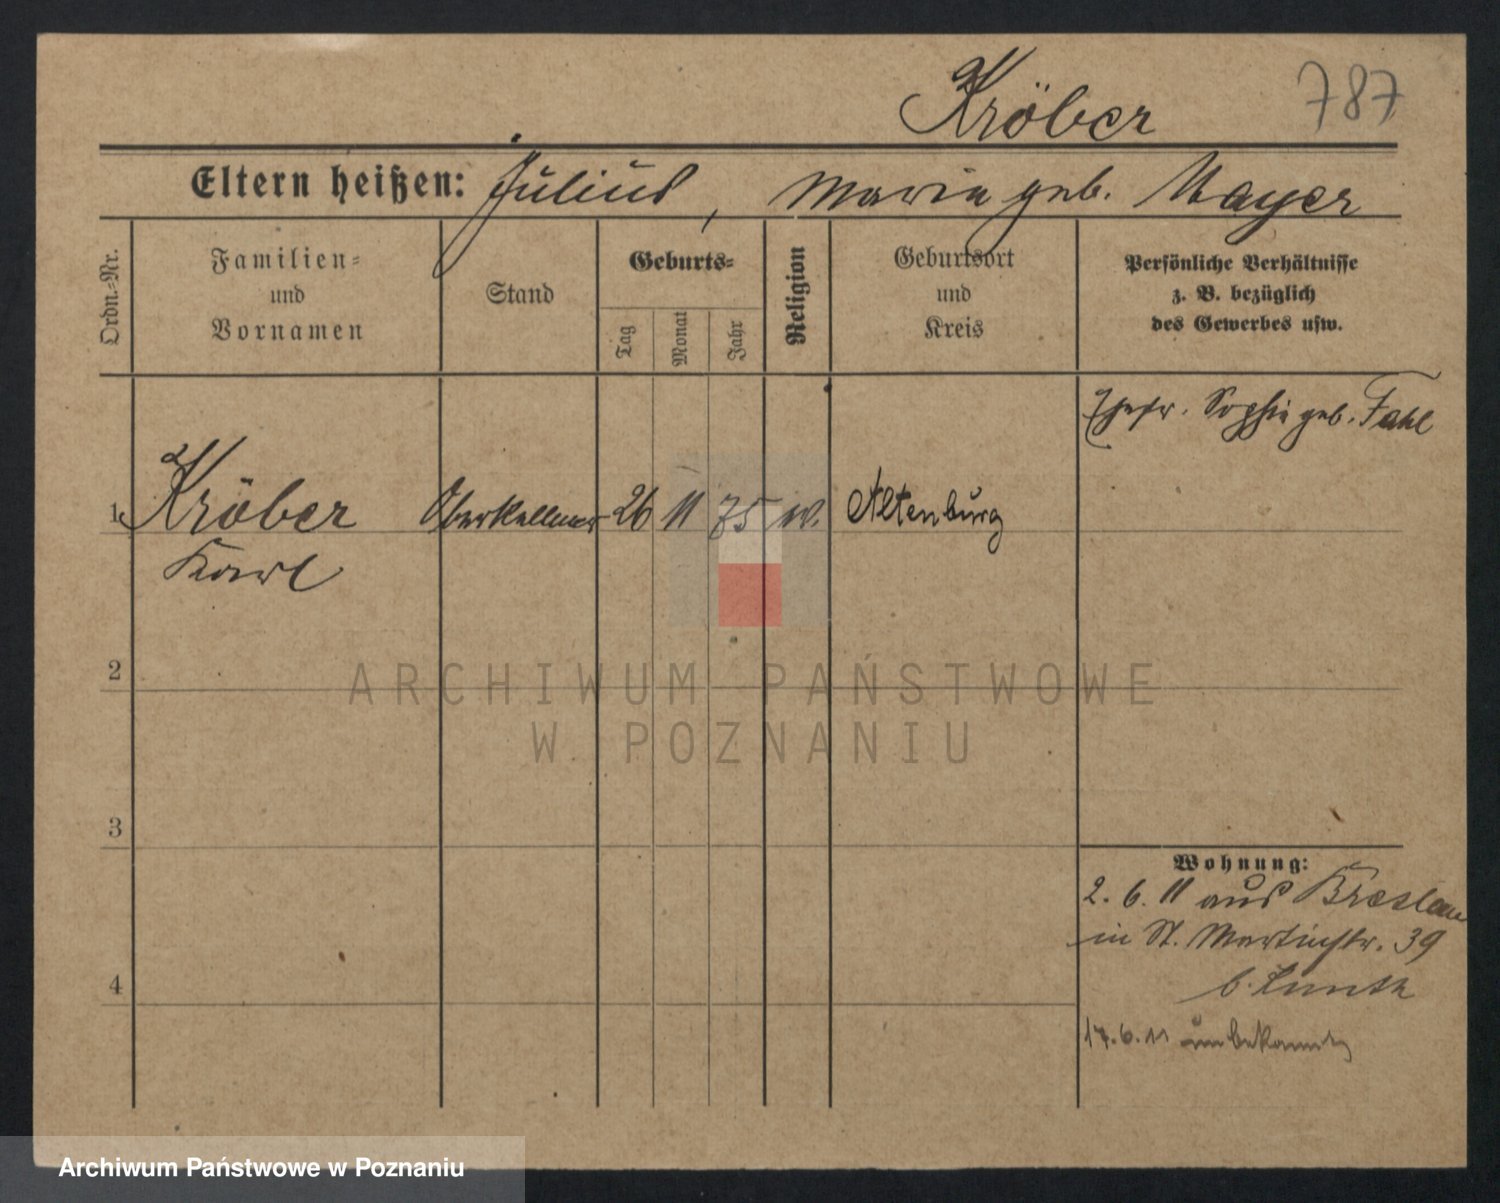 Kröber 787
Eltern heißen: Julius, Maria geb. Mayer
Ordn.-Nr.
Familien-
und
Vornamen
Stand
Geburts-
Tag
Monat
Jahr
Religion
Geburtsort
und
Kreis
Persönliche Verhältnisse
z. B. bezüglich
des Gewerbes usw.
Ehefr. Sophie geb. Fahl
1 Kröber Oberkellner 26 11 75 Altenburg
Karl
2
3
4
Wohnung:
2. 6. 11 aus Breslau
in St. Martinstr. 39
b.
17. 6. 11 unbekannt
ARCHIWUM PAŃSTWOWE
W POZNANIU
Archiwum Państwowe w Poznaniu